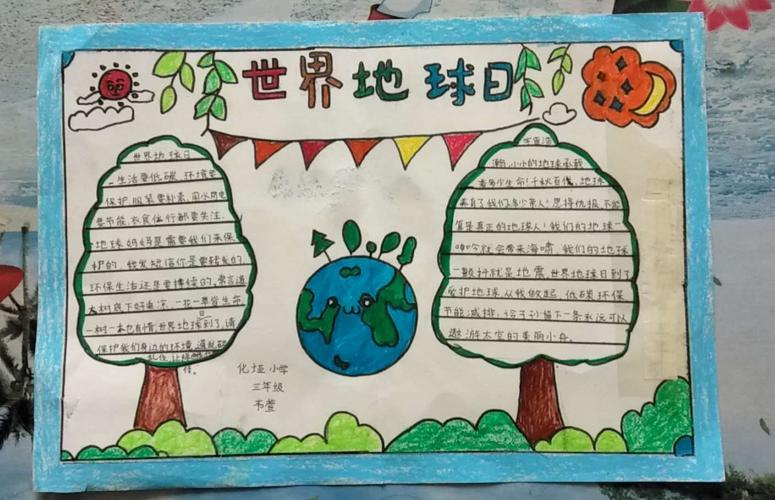 世界地球日
世界地球日
生活要低碳,环境要
保护,服装要朴素,用水用电
要节能,衣食住行都要关注.
地球妈妈是需要我们来保
护的,我发短信你是要转发的,
环保生活还是要搏续的.常言道
大树底下好乘凉,一花一草皆生命
一树一木也有情,世界地球日到了,请
保护我们身边的环境
让
瞧,小小的地球承载
着多少生命!千秋百代,地球
养育了我们多少亲人!恩将仇报,不能
算是真正的地球人!我们的地球一
咆哮就会带来海啸,我们的地球
一颤抖就是地震,世界地球日到了
爱护地球,从我做起,低碳环保
节能减排,给子孙留下一条永远可以
遨游太空的美丽小舟。
小学
三年级
韦萱